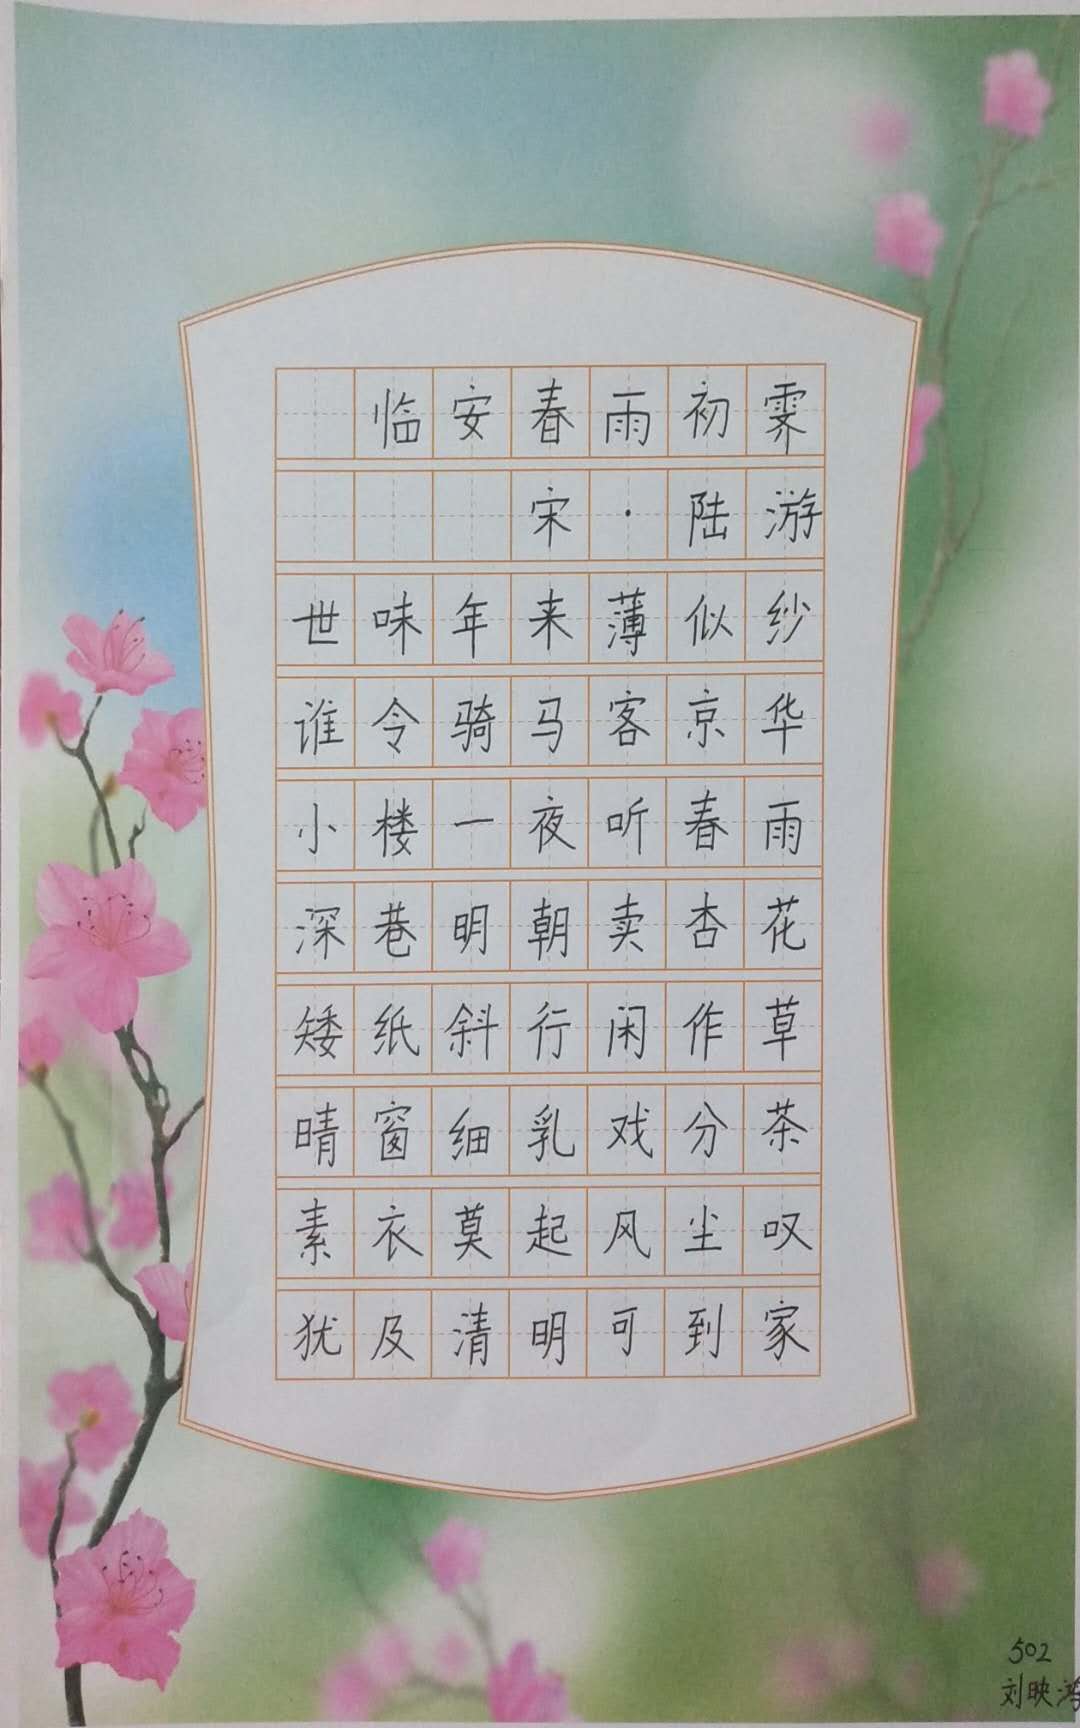 临安春雨初霁
宋·陆游
世味年来薄似纱
谁令骑马客京华
小楼一夜听春雨
深巷明朝卖杏花
矮纸斜行闲作草
晴窗细乳戏分茶
素衣莫起风尘叹
犹及清明可到家
502
刘映